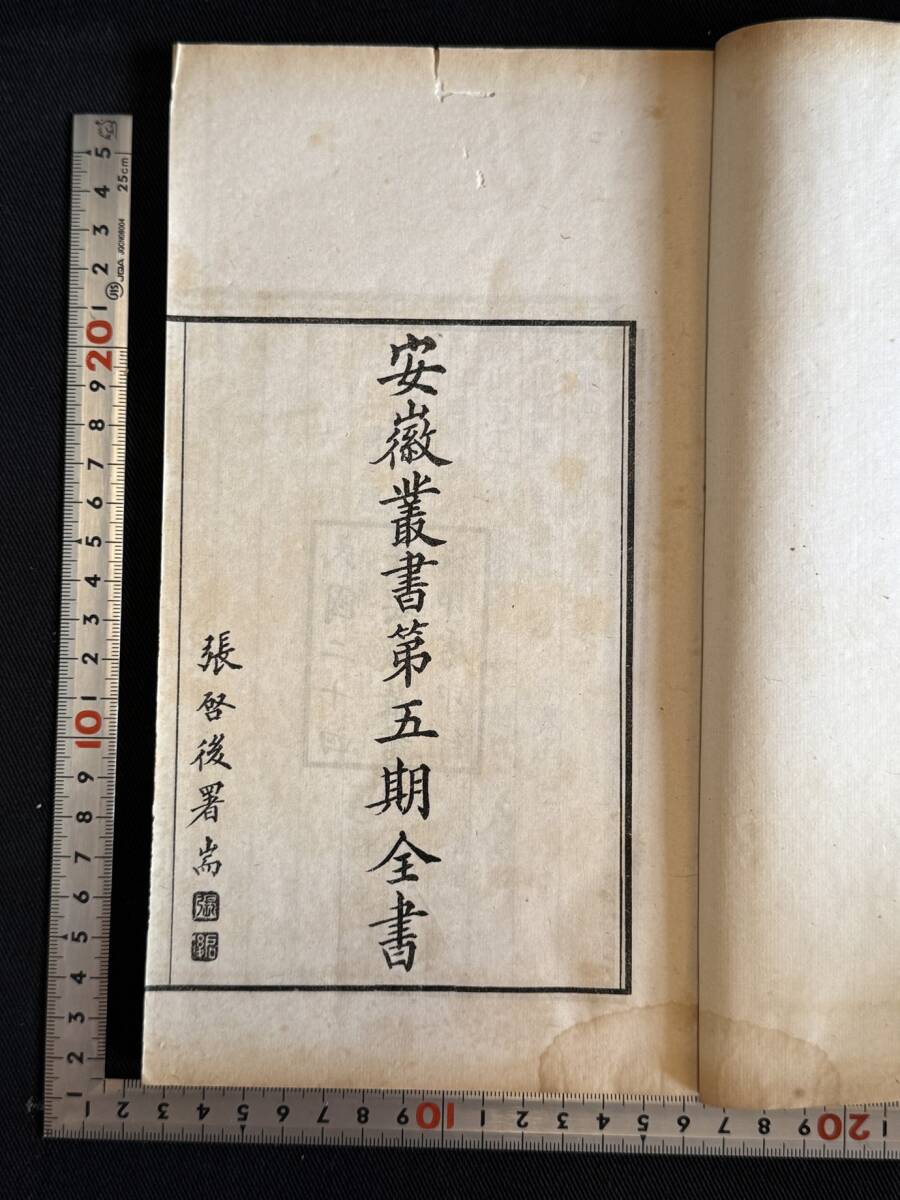 安徽叢書第五期全書
張啓後署耑
5
4
25cm
3
2
JIS JQA JQCN08004
1
20
9
8
7
6
5
4
3
2
1
10
9
8
7
6
5
4
3
2
1
1 2 3 4 5 6 7 8 9 10 1 2 3 4 5 6 7 8 9 20 1